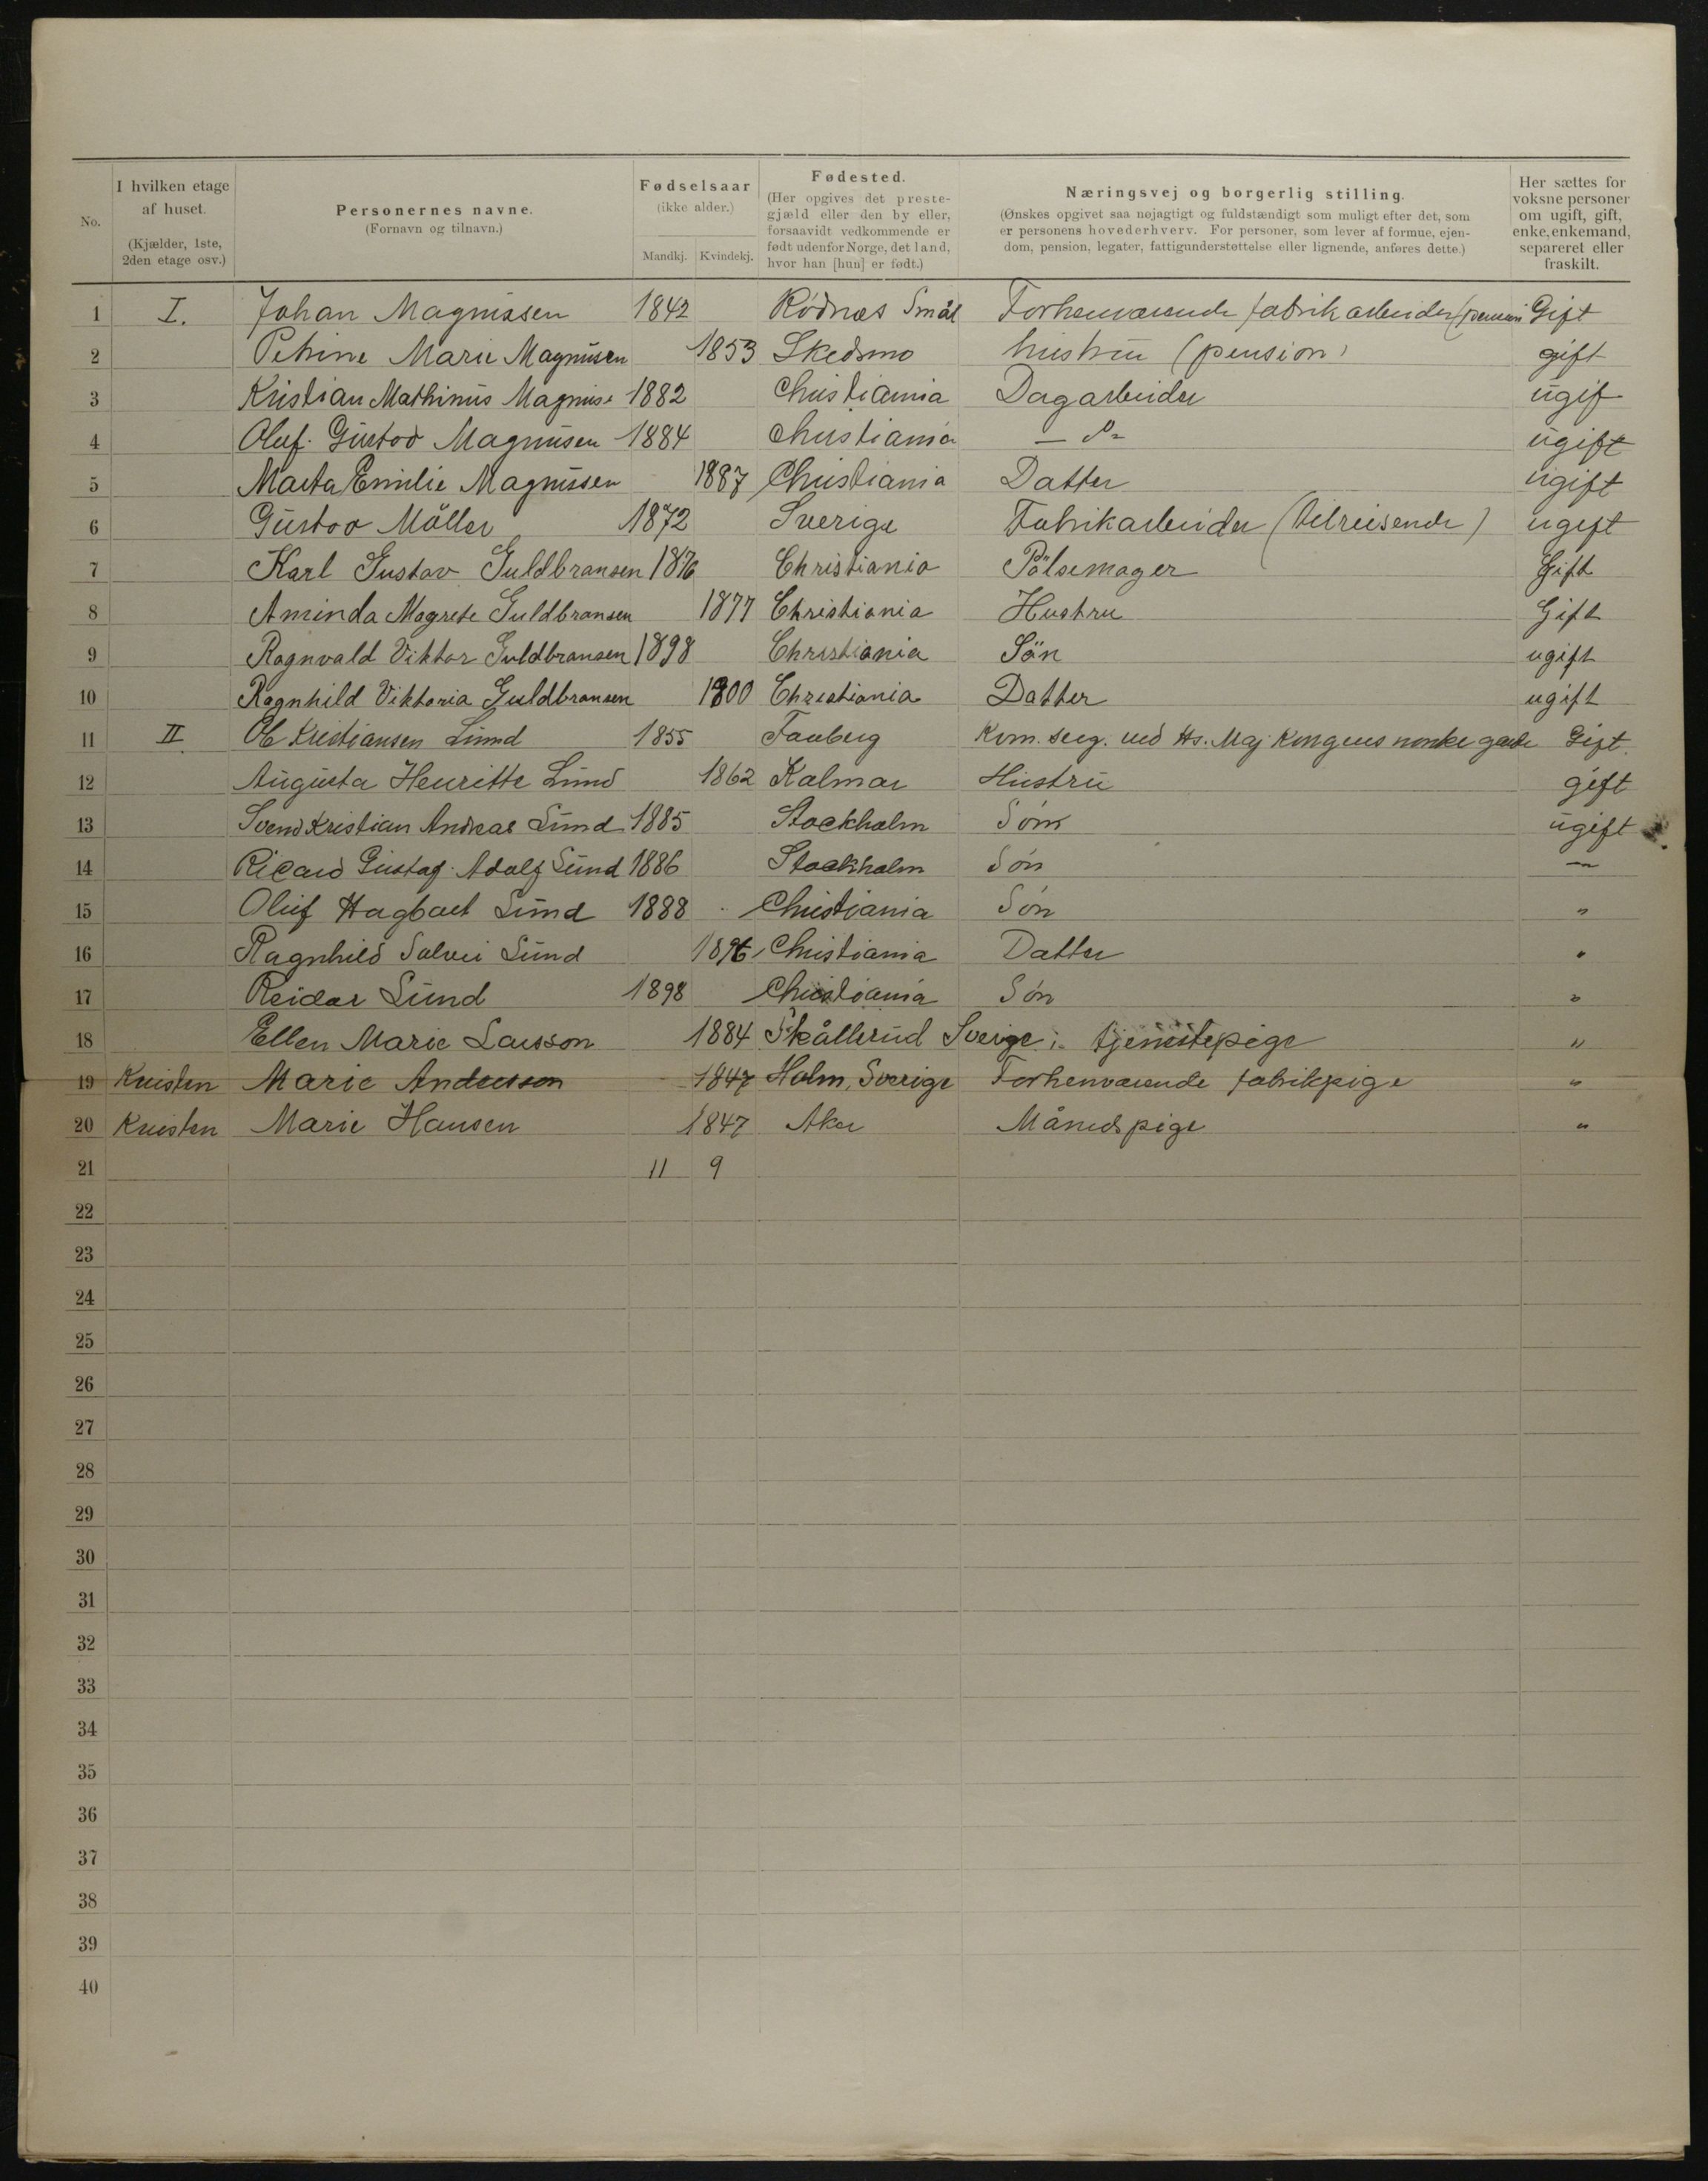 No. | I hvilken etage af huset. (Kjælder, 1ste, 2den etage osv.) | Personernes navne. (Fornavn og tilnavn.) | Fødselsaar (ikke alder.) Mandkj. | Kvindekj. | Fødested. (Her opgives det prestegjæld eller den by eller, forsaavidt vedkommende er født udenfor Norge, det land, hvor han [hun] er født.) | Næringsvej og borgerlig stilling. (Ønskes opgivet saa nøjagtigt og fuldstændigt som muligt efter det, som er personens hovederhverv. For personer, som lever af formue, ejendom, pension, legater, fattigunderstøttelse eller lignende, anføres dette.) | Her sættes for voksne personer om ugift, gift, enke, enkemand, separeret eller fraskilt.
1 I. Johan Magnussen 1842 Rödnæs Smål Forhenværende fabrikarbeider (pension Gift
2 Petrine Marie Magnusen 1853 Skedsmo hustru (pension) gift
3 Kristian Mathinus Magnuse 1882 Christiania Dagarbeider ugif
4 Oluf. Gustav Magnusen 1884 Christiania — d°- ugift
5 Marta Emilie Magnussen 1887 Christiania Datter ugift
6 Gustav Möller 1872 Sverige Fabrikarbeider (tilreisende) ugift
7 Karl Gustav Guldbransen 1876 Christiania Pölsemager Gift
8 Aminda Magrete Guldbransen 1877 Christiania Hustru Gift
9 Ragnvald Viktor Guldbransen 1898 Christiania Sön ugift
10 Ragnhild Viktoria Guldbransen 1900 Christiania Datter ugift
11 II Ole Kristiansen Lund 1855 Faaberg Kom. serg. ved Hs. Maj Kongens norske garde Gift.
12 Augusta Henriette Lund 1862 Kalmar Hustru gift
13 Svend Kristian Andreas Lund 1885 Stockholm Søn ugift
14 Ricard Gustaf. Adolf Lund 1886 Stockholm Søn —
15 Oluf Hagbart Lund 1888 Christiania Søn "
16 Ragnhild Solvei Lund 1896 Christiania Datter "
17 Reidar Lund 1898 Christiania Søn "
18 Ellen Marie Larsson 1884 Skållerud Sverige tjenestepige "
19 Kvisten Marie Andersson 1847 Holm, Sverige Forhenværende fabrikpige "
20 Kvisten Marie Hansen 1847 Aker Månedspige "
21 11 9
22
23
24
25
26
27
28
29
30
31
32
33
34
35
36
37
38
39
40